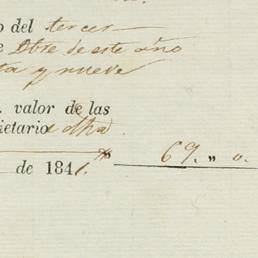 o del tercer
e Dbre de este año
ta y nueve
. valor de las
ietario dha
de 1841. 69. „ 0.